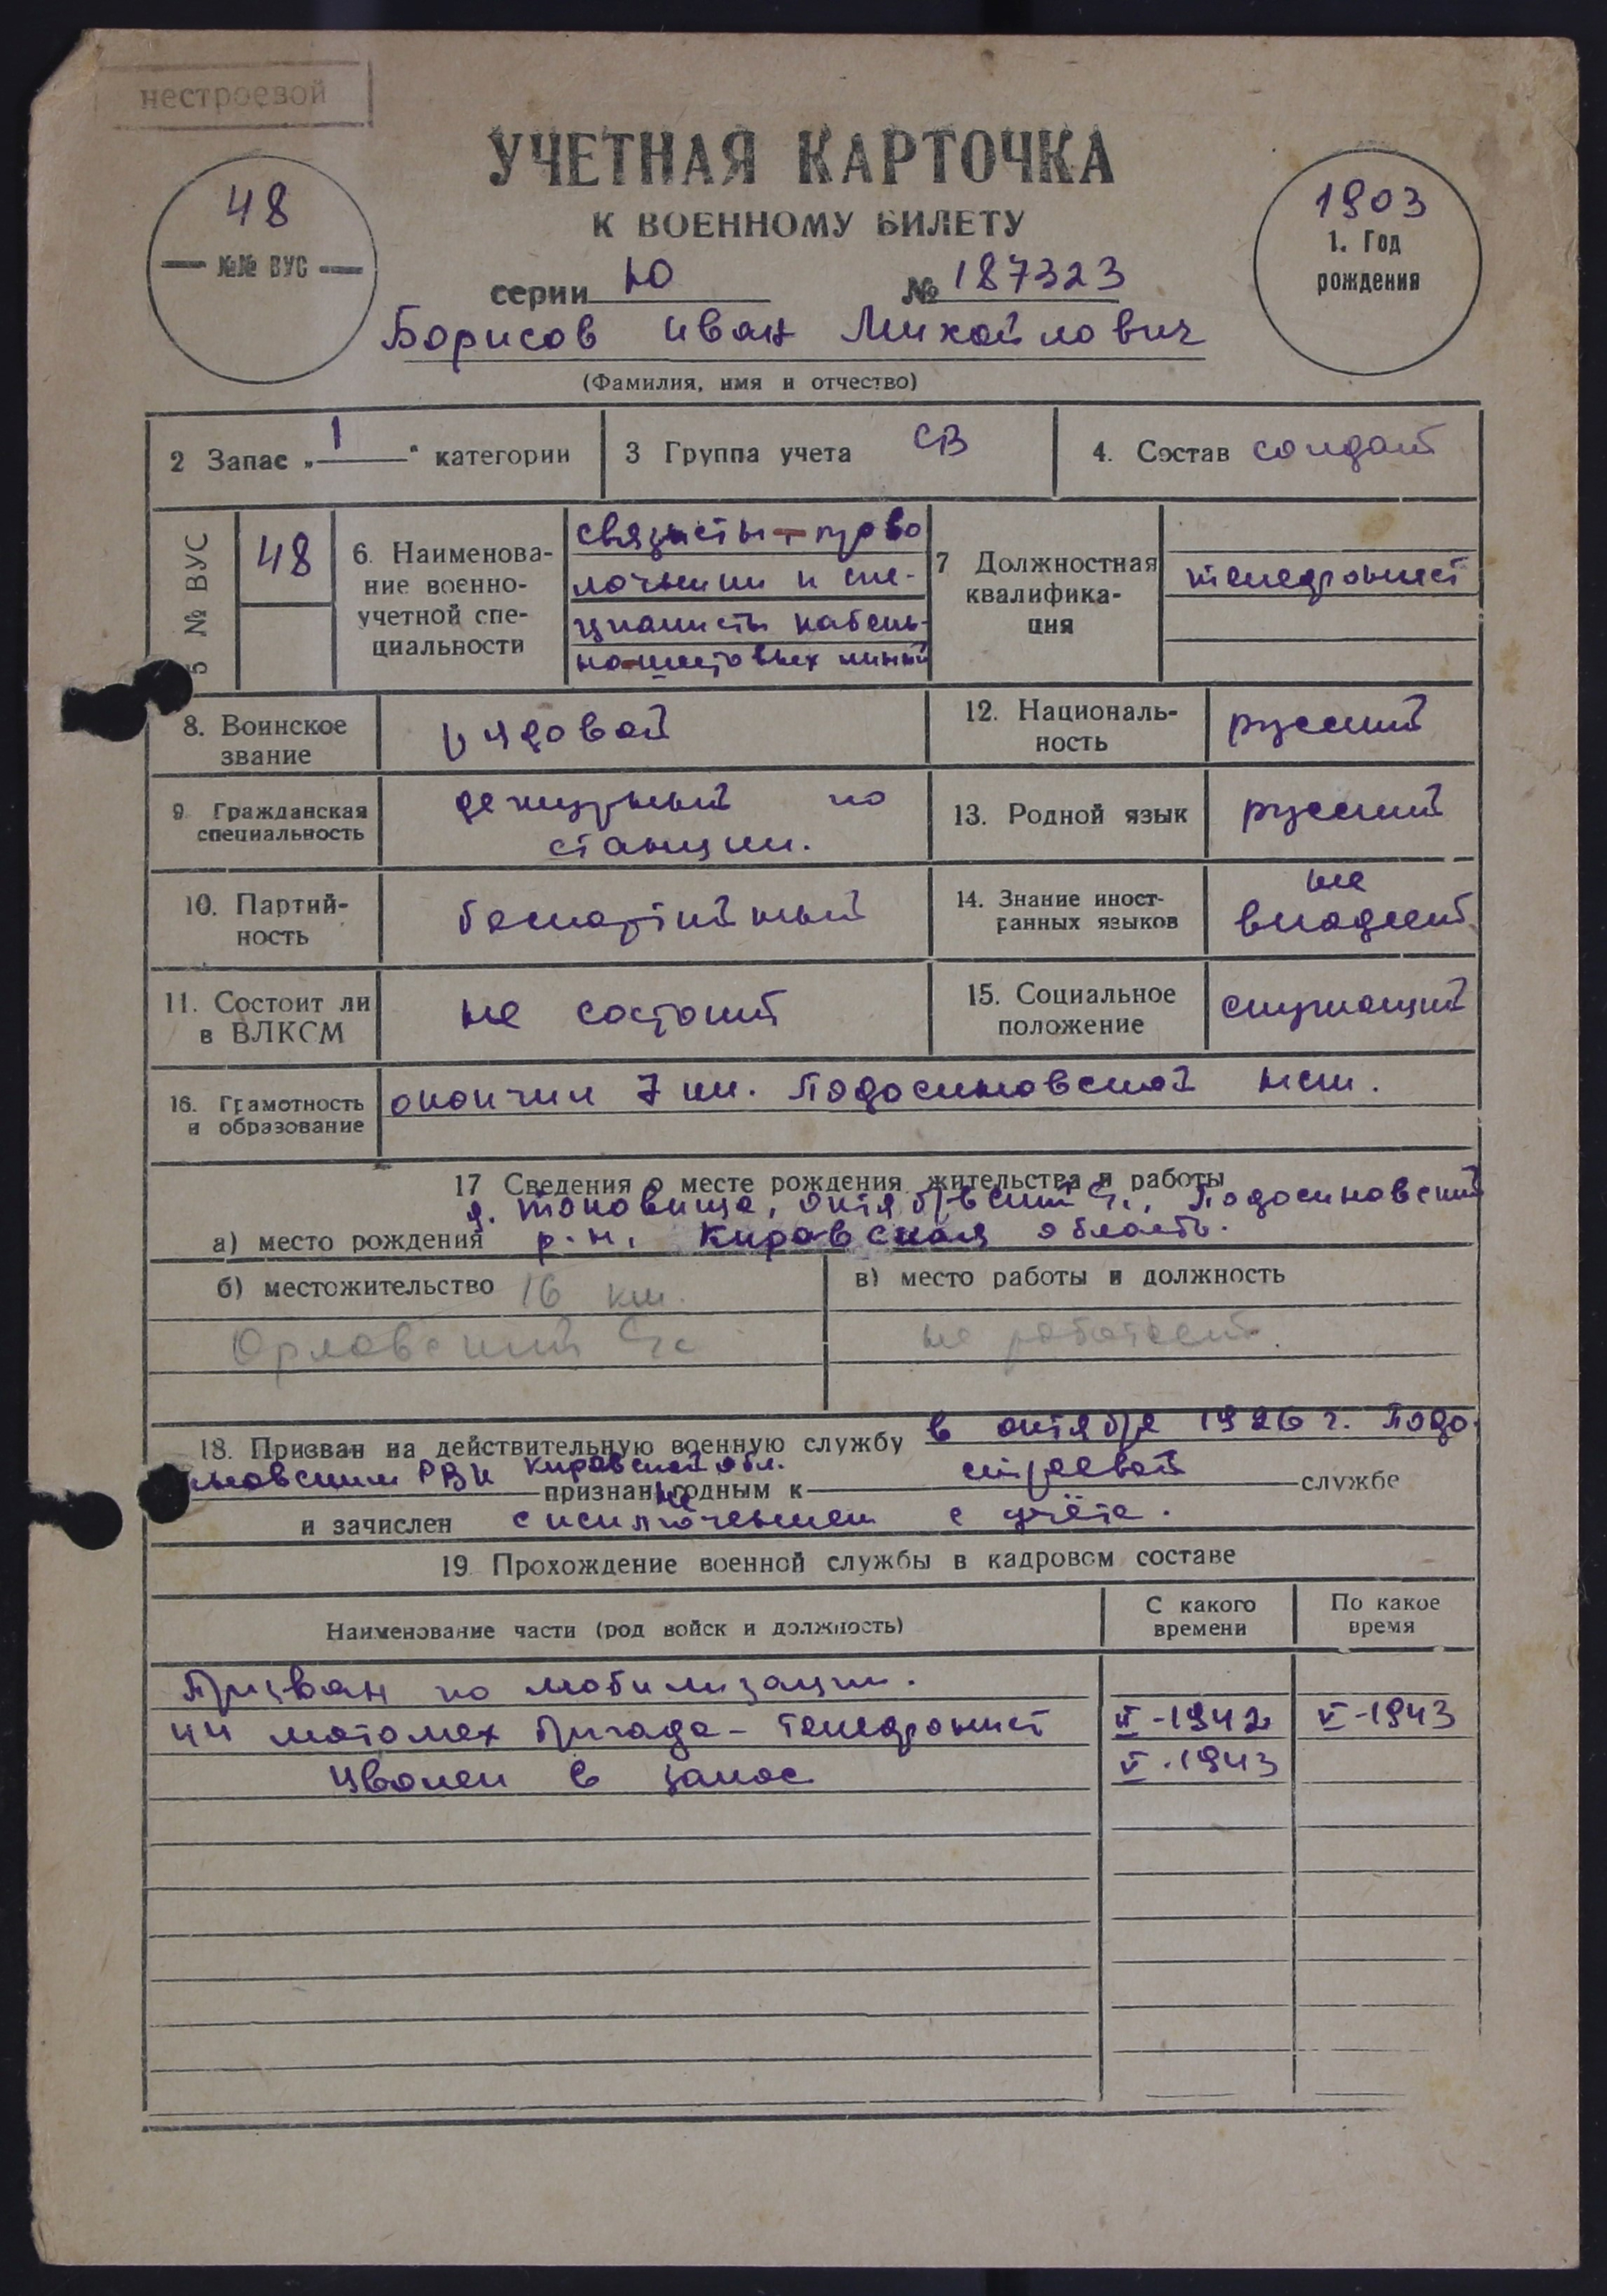 нестроевой
УЧЕТНАЯ КАРТОЧКА
К ВОЕННОМУ БИЛЕТУ
48
№№ ВУС
1903
1. Год
рождения
серии Ю № 187323
Борисов Иван Михайлович
(Фамилия, имя и отчество)
2 Запас „1“ категории
3 Группа учета СВ
4. Состав солдат
5 № ВУС
48
6. Наименова-
ние военно-
учетной спе-
циальности
связисты-прово
лочники и спе-
циалисты кабель-
но-шестовых линий
7 Должностная
квалифика-
ция
телефонист
8. Воинское
звание
рядовой
12. Националь-
ность
русский
9 Гражданская
специальность
дежурный по
станции.
13. Родной язык
русский
10. Партий-
ность
беспартийный
14. Знание иност-
ранных языков
не
владеет
11. Состоит ли
в ВЛКСМ
не состоит
15. Социальное
положение
служащий
16. Грамотность
и образование
окончил 7 кл. Подосиновской
17 Сведения о месте рождения жительства и работы
д. октябрьский с/с, Подосиновский
а) место рождения р-н, Кировская область.
б) местожительство 16 км.
Орловский с/с
в) место работы и должность
не работает.
18. Призван на действительную военную службу в октябре 1926 г. Подо-
синовским РВК Кировской обл. признан не годным к строевой службе
и зачислен с исключением с учёта.
19. Прохождение военной службы в кадровом составе
Наименование части (род войск и должность)
С какого
времени
По какое
время
Призван по мобилизации.
44 мотомех бригада - телефонист VI-1942 V-1943
Уволен в запас V-1943